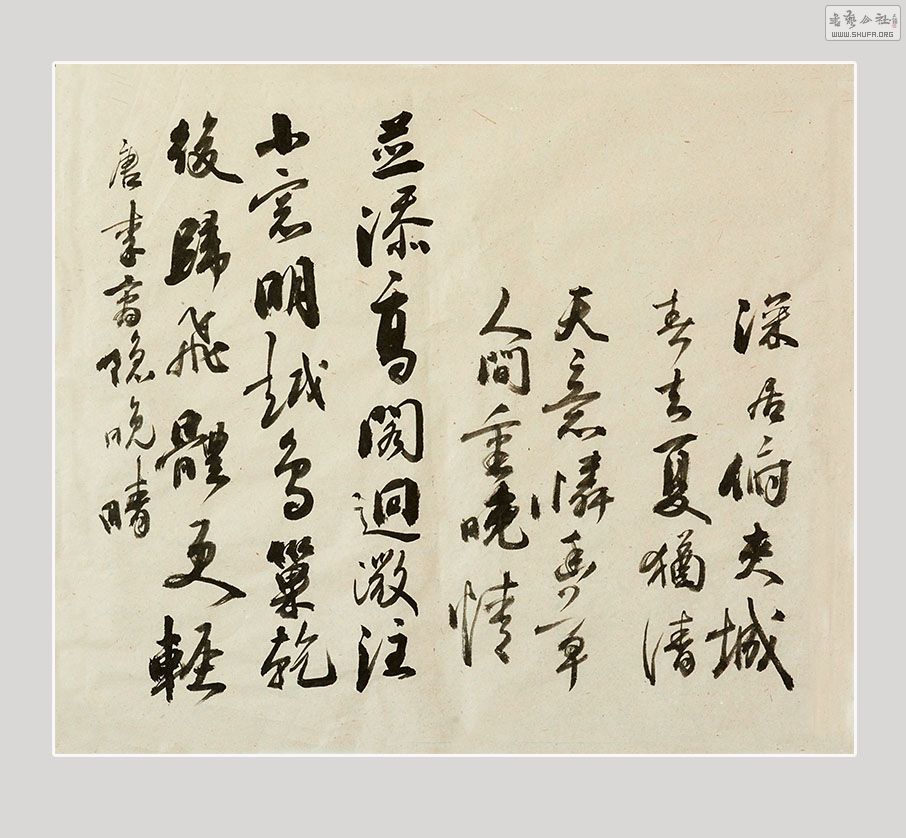 書藝公社
WWW.SHUFA.ORG
深居俯夾城
春去夏猶清
天意憐幽草
人間重晚情
並添高閣迥微注
小窓明越鳥巢乾
後歸飛體更輕
唐李商隐晚晴